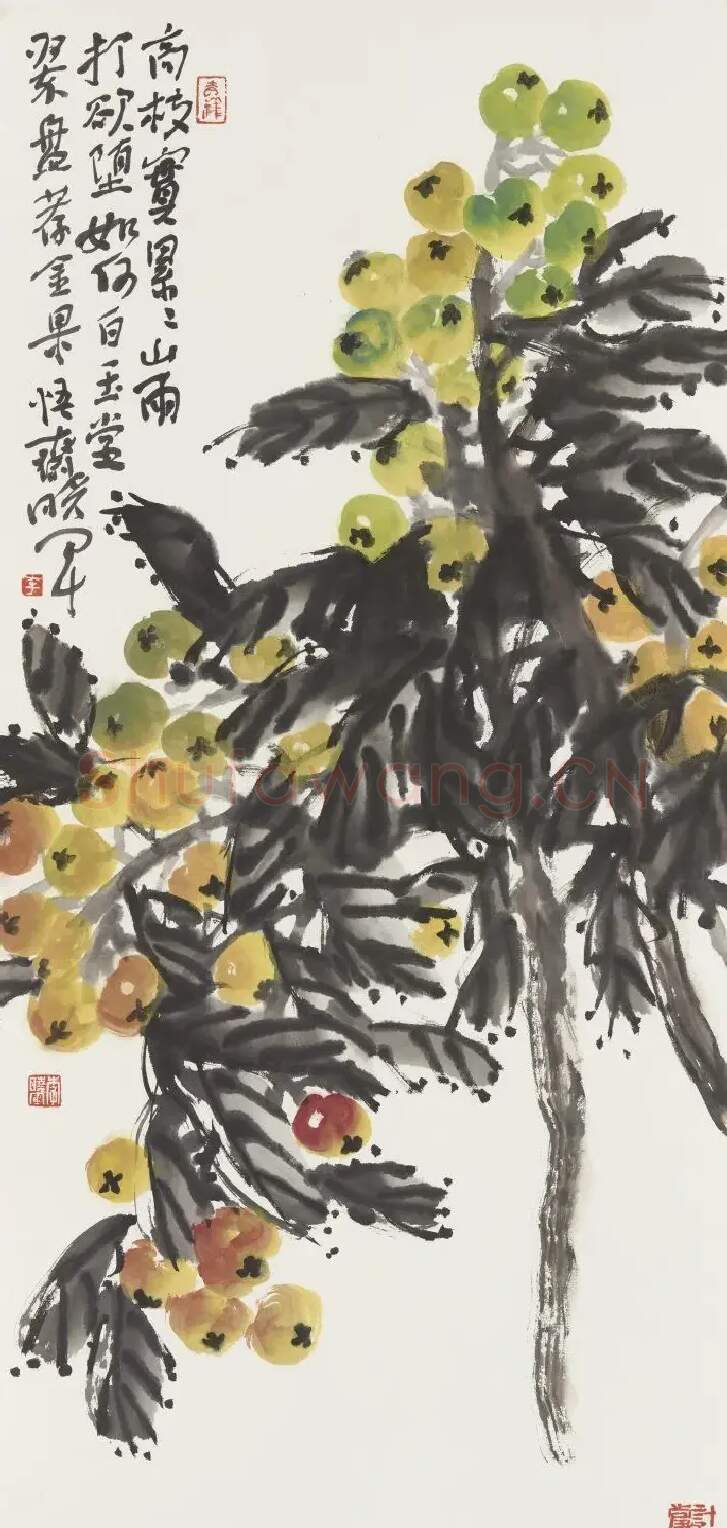 高枝實累〻山雨
打欲堕如何白玉堂
翠盘荐金果悟斋晓军
李
Shufawang.CN